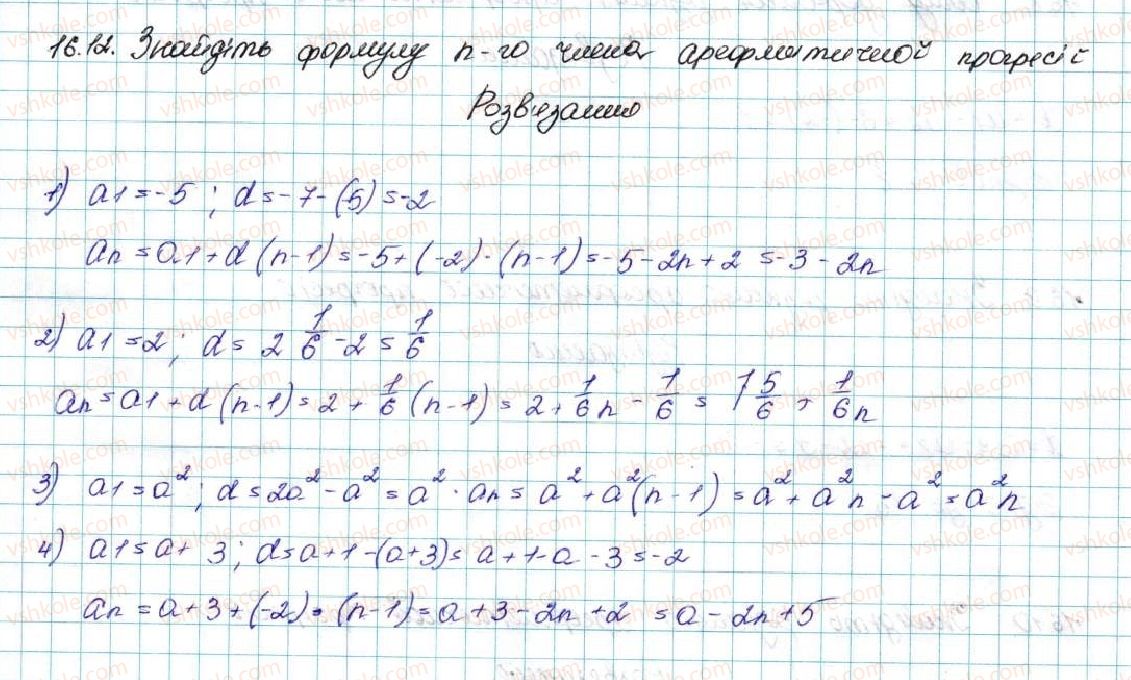 16.12. Знайдіть формулу n-го члена арефметичной прогресіі
Розв'язання
1) a1 = -5 ; d = -7 - (-5) = -2
an = a1 + d (n-1) = -5 + (-2) · (n-1) = -5 - 2n + 2 = -3 - 2n
2) a1 = 2 ; d = 2 1/6 - 2 = 1/6
an = a1 + d (n-1) = 2 + 1/6 (n-1) = 2 + 1/6 n - 1/6 = 1 5/6 + 1/6 n
3) a1 = a² ; d = 2a² - a² = a² · an = a² + a² (n-1) = a² + a²n - a² = a²n
4) a1 = a + 3 ; d = a + 1 - (a+3) = a + 1 - a - 3 = -2
an = a + 3 + (-2) · (n-1) = a + 3 - 2n + 2 = a - 2n + 5